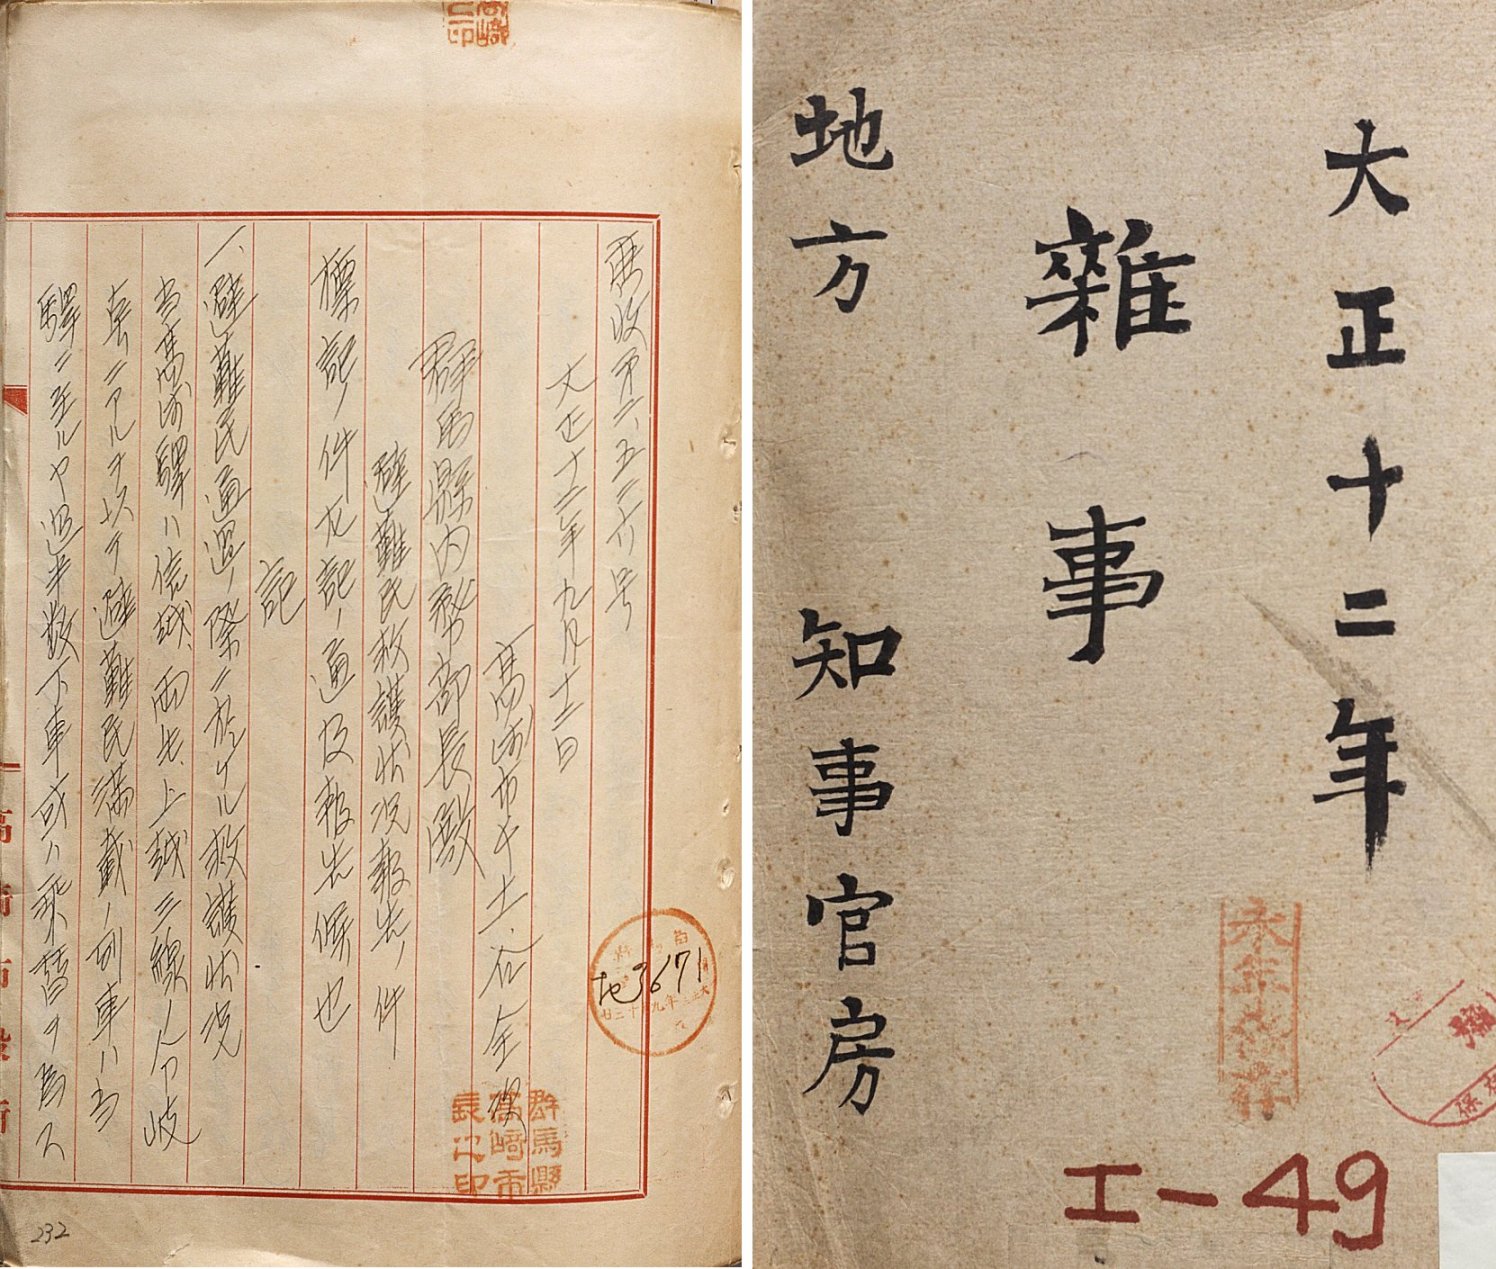 大正十二年
雜事
地方 知事官房
永年保存
I-49
庶收第六、五三六号
大正十二年九月十二日
高崎市長 土谷全次
群馬縣内務部長殿
避難民救護状況報告ノ件
標記ノ件左記ノ通及報告候也
記
一、避難民通過ノ際ニ於ケル救護状況
当高崎驛ハ信越、両毛、上越三線ノ分岐
点ニアルヲ以テ避難民満載ノ列車ハ当
驛ニ至ルヤ過半数下車或ハ乗替ヲ為ス
地3671
群馬縣
高崎市
長之印
232